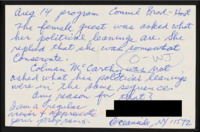 Aug 14 program Connie Brod - Host
The female guest was asked what
her political leanings are. She
replied that she was somewhat
Conservate.
(O-W)
Colman McCarthy was not
asked what his political leanings
were in the same sequence.
Any reason for that?
I am a regular
viewer & appreciate
your programs.
Oceanside, NY 11572